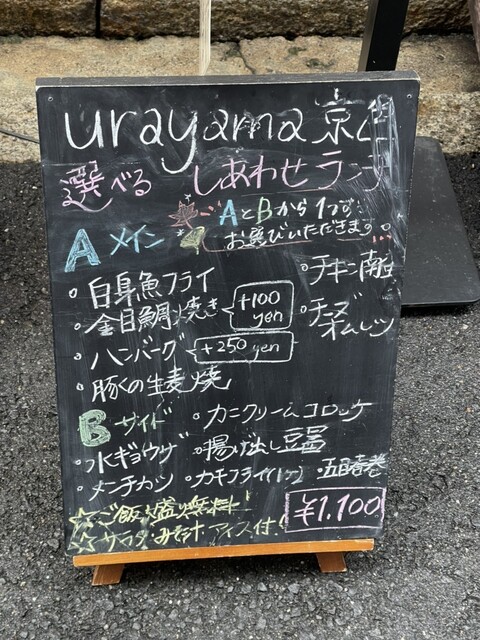 urayama 京色
選べる しあわせランチ
A メイン AとBから1つずつ
お選びいただきます。
・白身魚フライ ・チキン南蛮
・金目鯛焼き +100 yen ・チーズオムレツ
・ハンバーグ +250 yen
・豚の生姜焼
B サイド ・カニクリームコロッケ
・水ギョウザ ・揚げ出し豆腐
・メンチカツ ・カキフライ ・五目春巻
☆ご飯大盛り無料!
☆サラダ・みそ汁・アイス付!
¥1.100